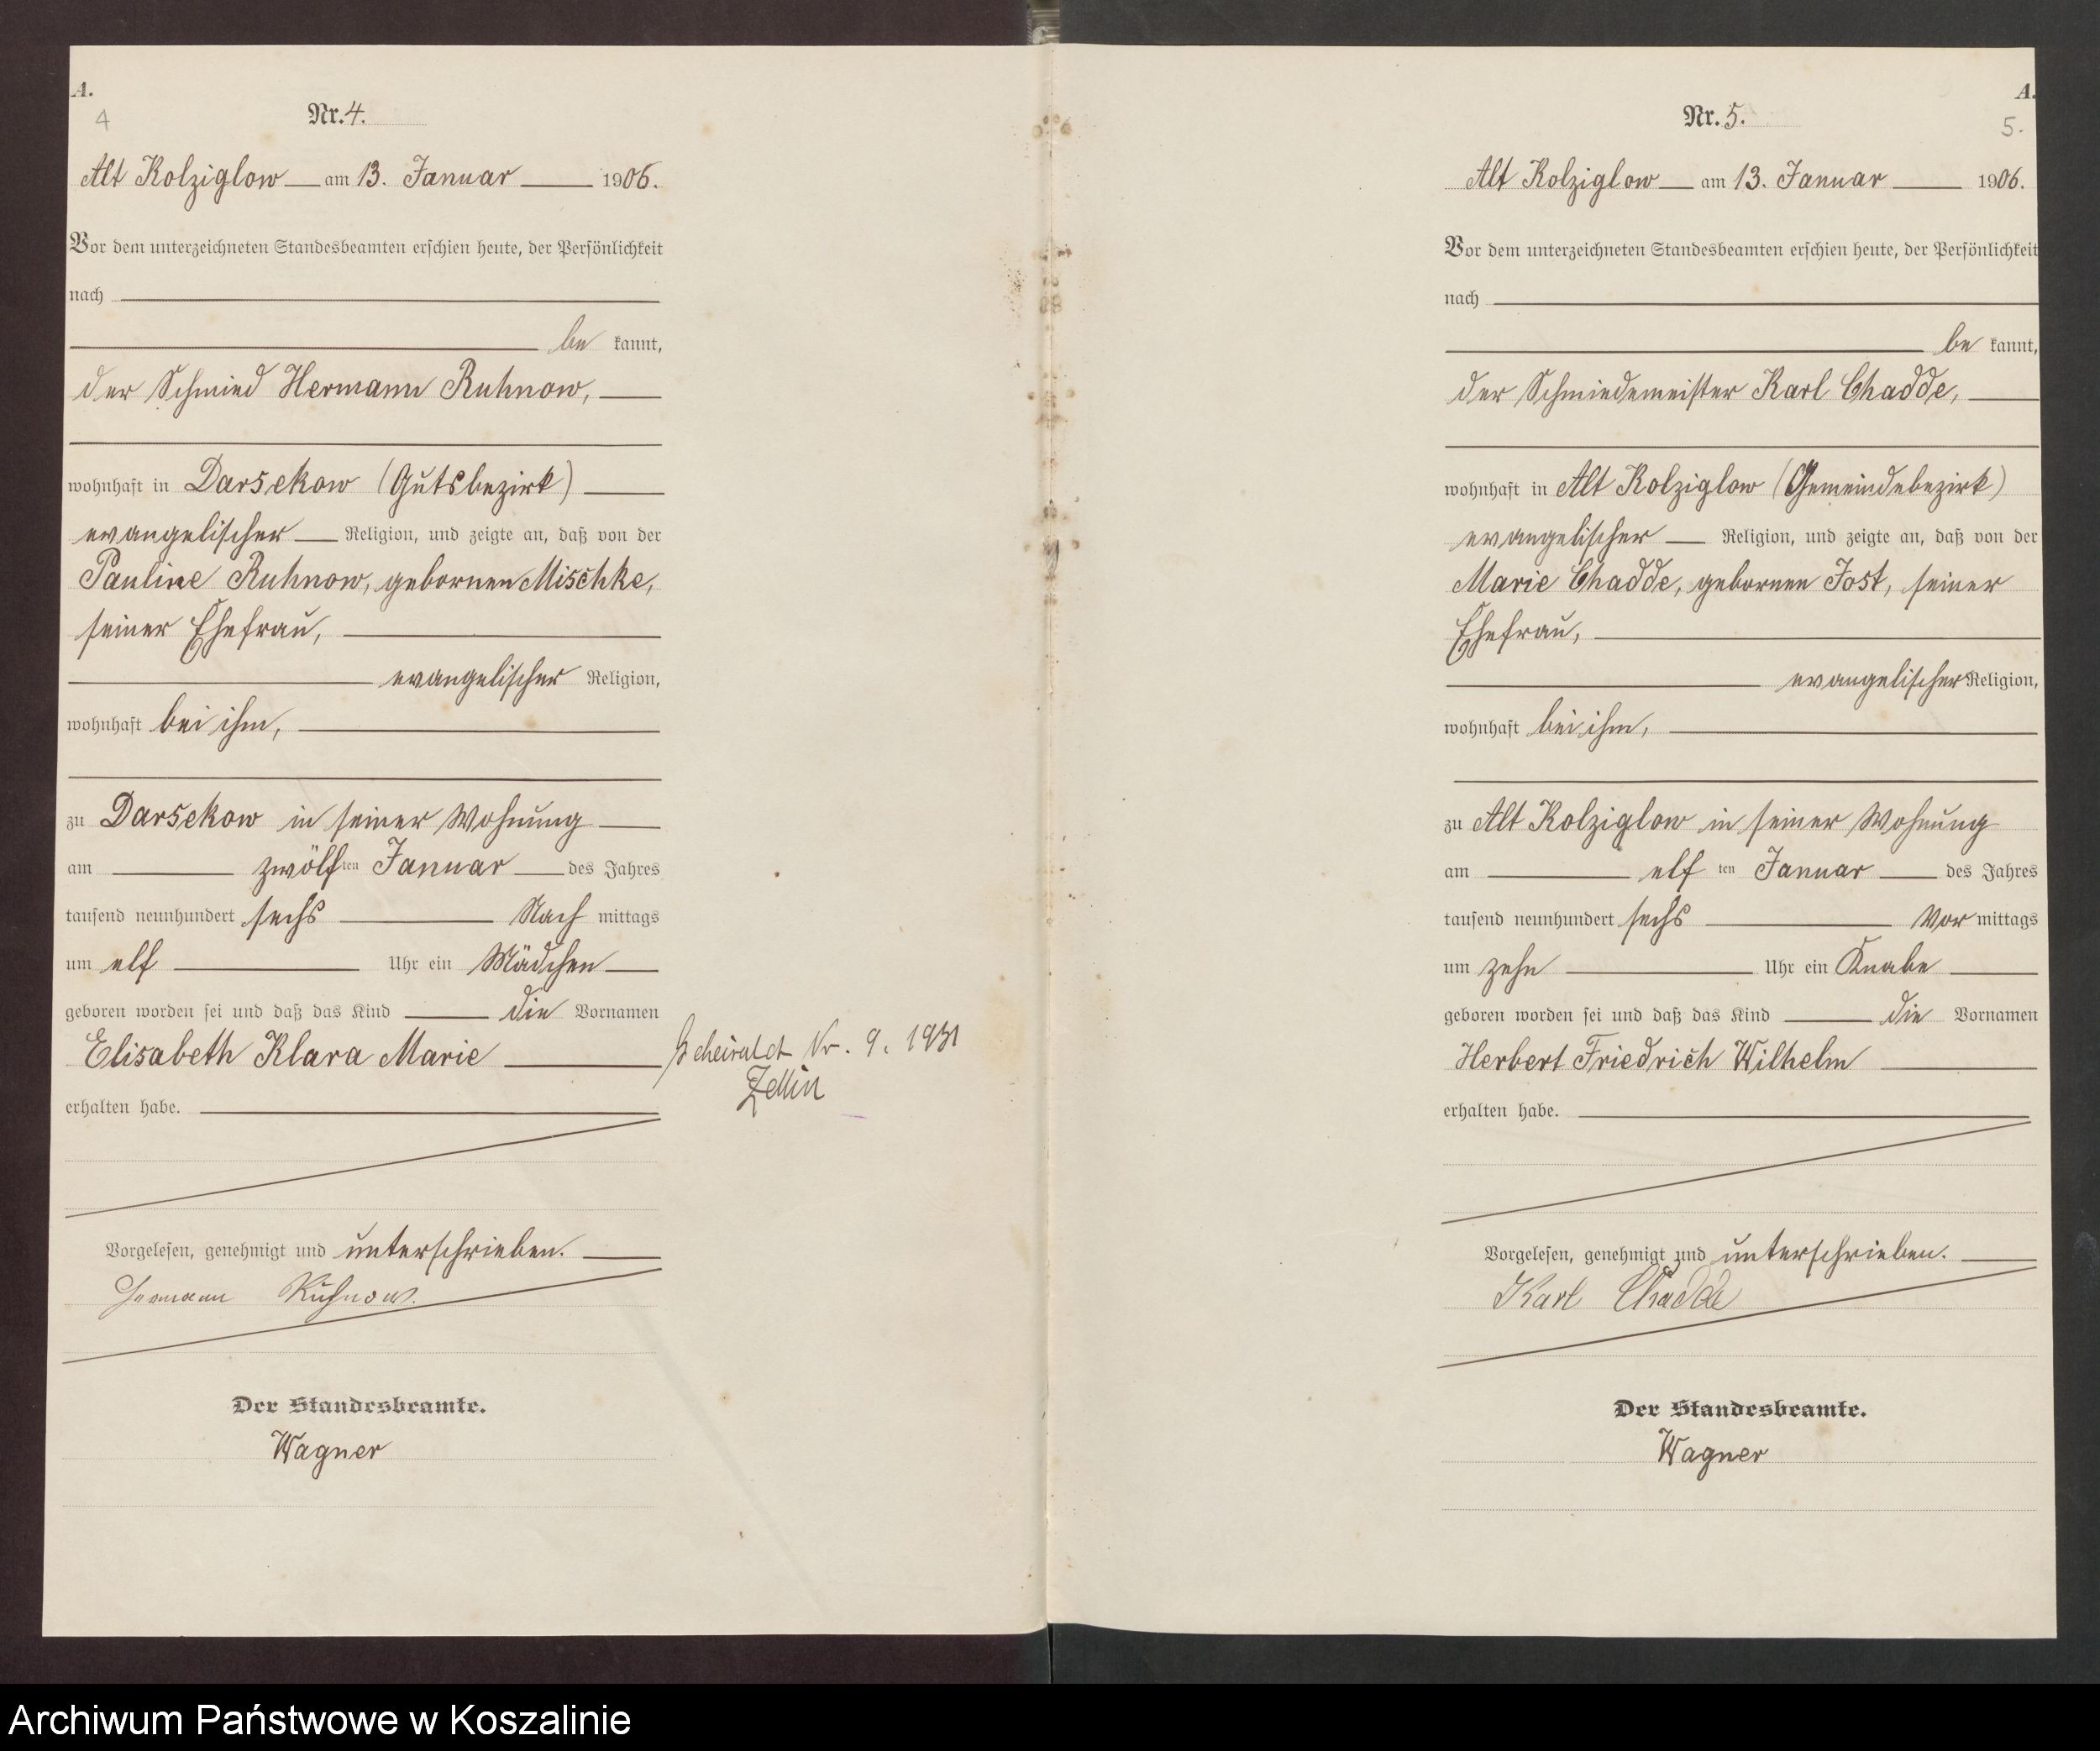 A.
4
Nr. 4.
Alt Kolziglow am 13. Januar 1906.
Vor dem unterzeichneten Standesbeamten erschien heute, der Persönlichkeit
nach
be kannt,
der Schmied Hermann Ruhnow,
wohnhaft in Darsekow (Gutsbezirk)
evangelischer Religion, und zeigte an, daß von der
Pauline Ruhnow, gebornen Mischke,
seiner Ehefrau,
evangelischer Religion,
wohnhaft bei ihm,
zu Darsekow in seiner Wohnung
am zwölf ten Januar des Jahres
tausend neunhundert sechs Nach mittags
um elf Uhr ein Mädchen
geboren worden sei und daß das Kind die Vornamen
Elisabeth Klara Marie
erhalten habe.
Vorgelesen, genehmigt und unterschrieben.
Hermann Ruhnow.
Der Standesbeamte.
Wagner
Nr. 9. 1931
Zettin
A.
5.
Nr. 5.
Alt Kolziglow am 13. Januar 1906.
Vor dem unterzeichneten Standesbeamten erschien heute, der Persönlichkeit
nach
be kannt,
der Schmiedemeister Karl Chadde,
wohnhaft in Alt Kolziglow (Gemeindebezirk)
evangelischer Religion, und zeigte an, daß von der
Marie Chadde, gebornen Jost, seiner
Ehefrau,
evangelischer Religion,
wohnhaft bei ihm,
zu Alt Kolziglow in seiner Wohnung
am elf ten Januar des Jahres
tausend neunhundert sechs Vor mittags
um zehn Uhr ein Knabe
geboren worden sei und daß das Kind die Vornamen
Herbert Friedrich Wilhelm
erhalten habe.
Vorgelesen, genehmigt und unterschrieben.
Karl Chadde
Der Standesbeamte.
Wagner
Archiwum Państwowe w Koszalinie